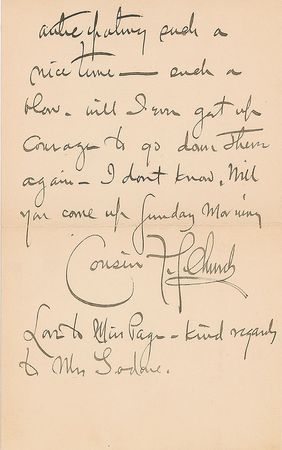 anticipating such a
nice time — such a
blow. will I ever get up
courage to go down there
again — I don't know, Will
you come up Sunday Morning
Cousin F. Church
Love to Miss Page — kind regards
to Mrs